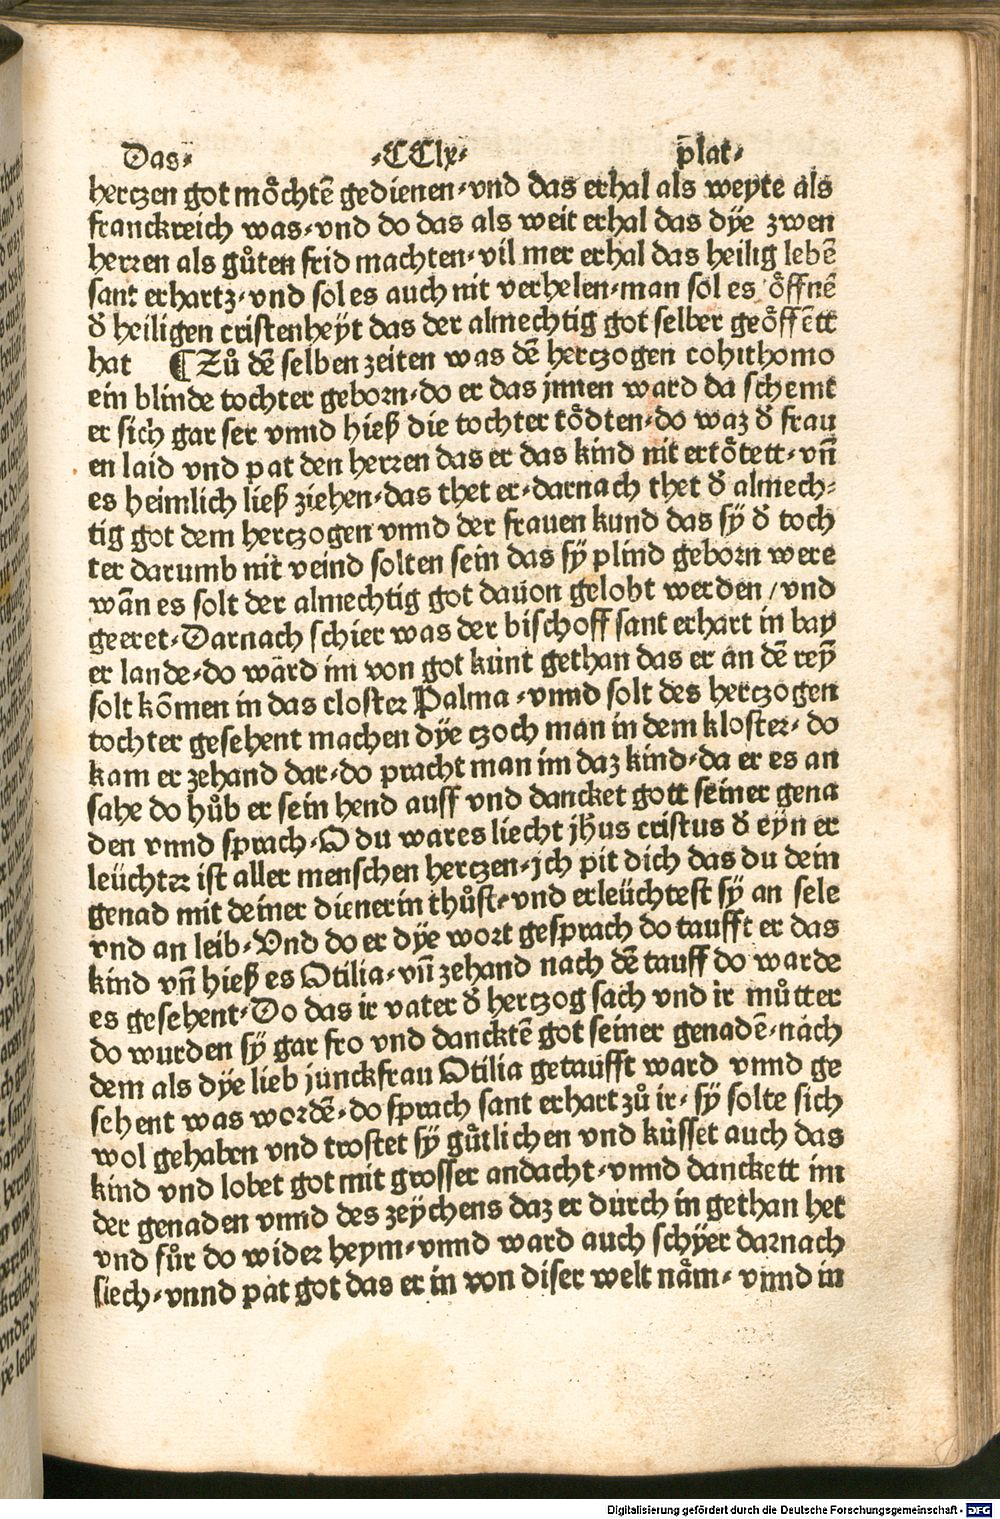 Das⸗ ⸗CClx⸗ p̄lat⸗
hertzen got moͤchtē gedienen⸗vnd das erhal als weyte als
franckreich was⸗vnd do das als weit erhal das dÿe zwen
herren als guͦten frid machten⸗vil mer erhal das heilig lebē
sant erhartz⸗vnd sol es auch nit verhelen⸗man sol es oͤffnē
đ heiligen cristenheÿt das der almechtig got selber geoͤffētt
hat ¶ Zuͦ dē selben zeiten was dē hertzogen cohithomo
ein blinde tochter geborn⸗do er das jnnen ward da schemt
er sich gar ser vnnd hieß die tochter toͤdten⸗do waz đ frau
en laid vnd pat den herren das er das kind nit ertoͤtett⸗vn̄
es heimlich ließ ziehen⸗das thet er⸗darnach thet đ almech⸗
tig got dem hertzogen vnnd der frauen kund das sÿ đ toch
ter darumb nit veind solten sein das sÿ plind geborn were
wān es solt der almechtig got dauon gelobt werden/vnd
geeret⸗Darnach schier was der bischoff sant erhart in bay
er lande⸗do ward im von got kunt gethan das er an dē reÿ
solt kōmen in das closter Palma⸗vnnd solt des hertzogen
tochter gesehent machen dÿe tzoch man in dem kloster⸗do
kam er zehand dar⸗do pracht man im daz kind⸗da er es an
sahe do huͦb er sein hend auff vnd dancket gott seiner gena
den vnnd sprach⸗O du wares liecht jh̄us cristus đ eÿn er
leüchter ist aller menschen hertzen⸗jch pit dich das du dein
genad mit deiner dienerin thuͦst⸗vnd erleüchtest sÿ an sele
vnd an leib⸗Vnd do er dÿe wort gesprach do taufft er das
kind vn̄ hieß es Otilia⸗vn̄ zehand nach dē tauff do warde
es gesehent⸗Do das ir vater đ hertzog sach vnd ir muͦtter
do wurden sÿ gar fro vnd dancktē got seiner genadē⸗nach
dem als dÿe lieb junckfrau Otilia getaufft ward vnnd ge
sehent was wordē⸗do sprach sant erhart zuͦ ir⸗sÿ solte sich
wol gehaben vnd trostet sÿ guͤtlichen vnd kusset auch das
kind vnd lobet got mit grosser andacht⸗vnnd danckett im
der genaden vnnd des zeÿchens daz er durch in gethan het
vnd fuͦr do wider heym⸗vnnd ward auch schÿer darnach
siech⸗vnnd pat got das er in von diser welt naͤm⸗vnnd in
Digitalisierung gefördert durch die Deutsche Forschungsgemeinschaft - DFG